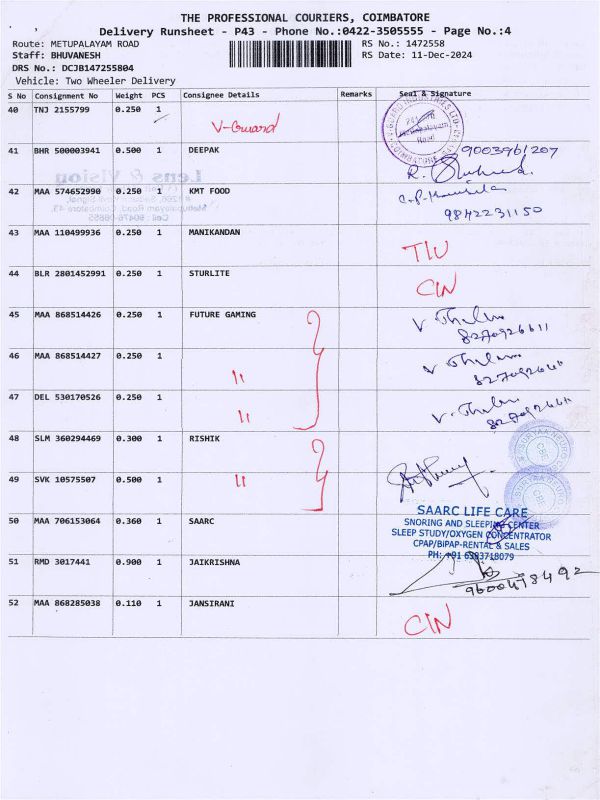 THE PROFESSIONAL COURIERS, COIMBATORE
Delivery Runsheet - P43 - Phone No.:0422-3505555 - Page No.:4
Route: METUPALAYAM ROAD RS No.: 1472558
Staff: BHUVANESH RS Date: 11-Dec-2024
DRS No.: DCJB147255804
Vehicle: Two Wheeler Delivery
S No Consignment No Weight PCS Consignee Details Remarks Seal & Signature
40 TNJ 2155799 0.250 1 V-Guard
41 BHR 500003941 0.500 1 DEEPAK 9003961207
42 MAA 574652990 0.250 1 KMT FOOD 9842231150
43 MAA 110499936 0.250 1 MANIKANDAN
44 BLR 2801452991 0.250 1 STURLITE CIN
45 MAA 868514426 0.250 1 FUTURE GAMING
46 MAA 868514427 0.250 1 "
47 DEL 530170526 0.250 1 "
48 SLM 360294469 0.300 1 RISHIK
49 SVK 10575507 0.500 1 "
50 MAA 706153064 0.360 1 SAARC
SAARC LIFE CARE
SNORING AND SLEEPING CENTER
SLEEP STUDY/OXYGEN CONCENTRATOR
CPAP/BIPAP-RENTAL & SALES
PH: +91 6383718079
51 RMD 3017441 0.900 1 JAIKRISHNA 9600418492
52 MAA 868285038 0.110 1 JANSIRANI CIN